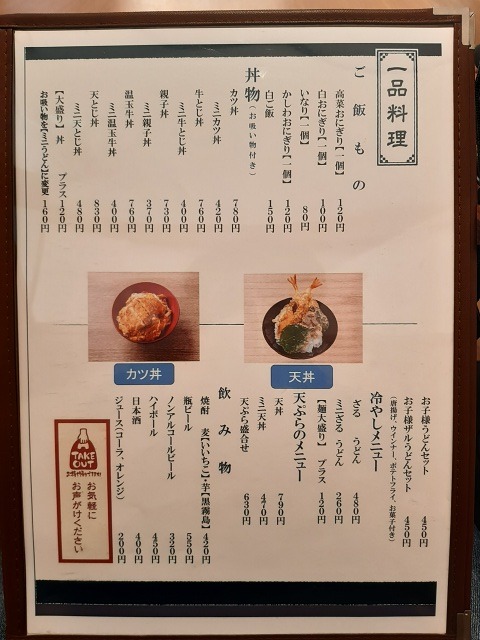 一品料理
ご飯もの
高菜おにぎり【一個】 120円
白おにぎり【一個】 100円
いなり【一個】 80円
かしわおにぎり【一個】 120円
白ご飯 150円
丼物（お吸い物付き）
カツ丼 780円
ミニカツ丼 420円
牛とじ丼 760円
ミニ牛とじ丼 400円
親子丼 730円
ミニ親子丼 370円
温玉牛丼 760円
ミニ温玉牛丼 400円
天とじ丼 830円
ミニ天とじ丼 480円
【大盛り】丼 プラス 120円
お吸い物を【ミニうどん】に変更 160円
カツ丼
天丼
お子様うどんセット 450円
お子様ザルうどんセット 450円
（唐揚げ、ウインナー、ポテトフライ、お菓子付き）
冷やしメニュー
ざる うどん 480円
ミニざる うどん 260円
【麺大盛り】 プラス 120円
天ぷらのメニュー
天丼 790円
ミニ天丼 470円
天ぷら盛合せ 630円
飲み物
焼酎 麦【いいちこ】・芋【黒霧島】 420円
瓶ビール 550円
ノンアルコールビール 320円
ハイボール 450円
日本酒 400円
ジュース（コーラ、オレンジ） 200円
TAKE OUT
お気軽に
お声がけください